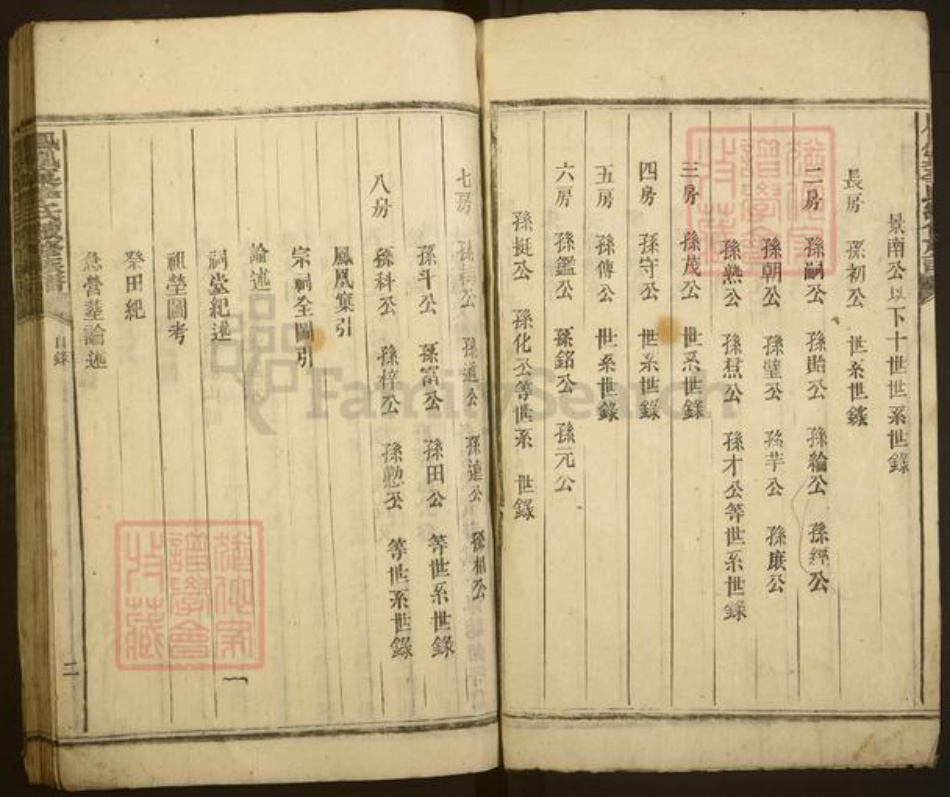 景南公以下十世世系世錄
長房 孫初公 世系世錄
二房 孫嗣公 孫貽公 孫綸公 孫經公
孫朝公 孫璧公 孫芋公 孫庶公
孫熟公 孫焄公 孫才公等世系世錄
三房 孫茂公 世系世錄
四房 孫守公 世系世錄
五房 孫傅公 世系世錄
六房 孫鑑公 孫銘公 孫元公
孫挺公 孫化公等世系 世錄
七房 孫 公 孫道公 孫達公 孫相公
孫斗公 孫富公 孫田公 等世系世錄
八房 孫科公 孫梓公 孫懃公 等世系世錄
鳳凰窠引
宗祠全圖引
論述
祠堂紀述
祖塋圖考
祭田紀
急營塟論述
目錄
二
FamilySearch